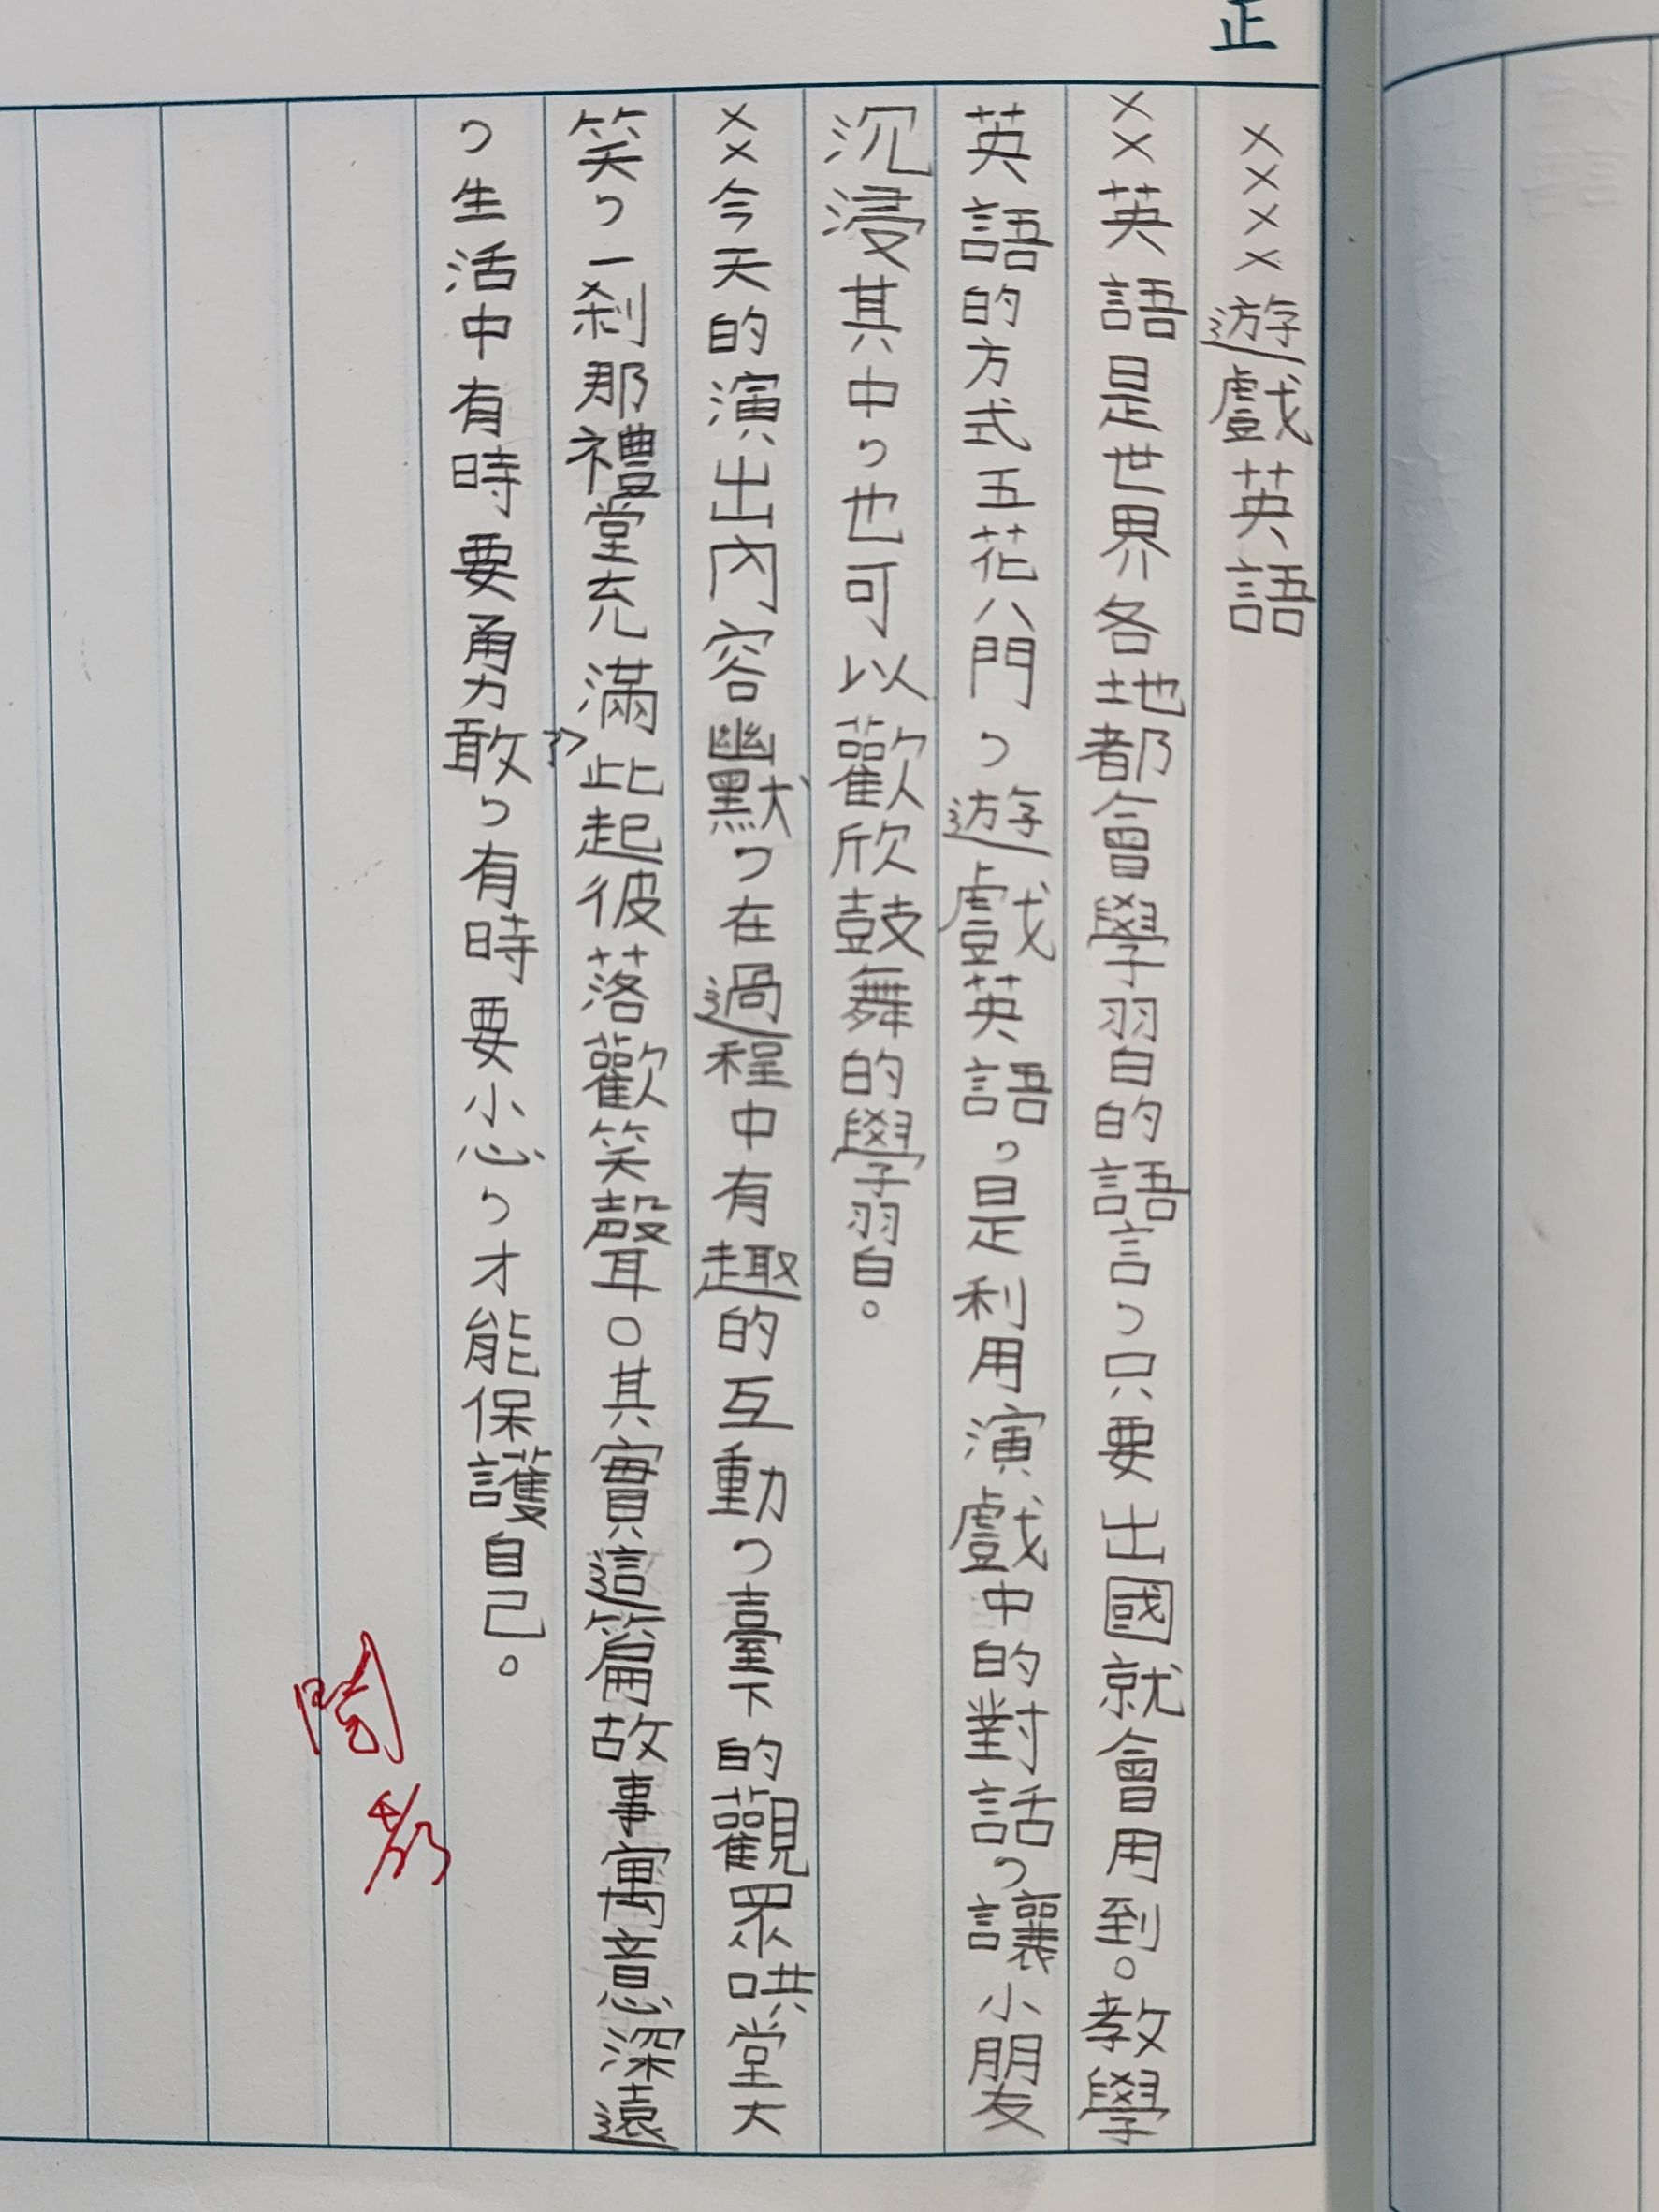 正
××××遊戲英語
××英語是世界各地都會學習的語言，只要出國就會用到。教學
英語的方式五花八門，遊戲英語，是利用演戲中的對話，讓小朋友
沉浸其中，也可以歡欣鼓舞的學習。
××今天的演出內容幽默，在過程中有趣的互動，臺下的觀眾哄堂大
笑，一剎那禮堂充滿此起彼落歡笑聲。其實這篇故事寓意深遠
，生活中有時要勇敢，有時要小心，才能保護自己。